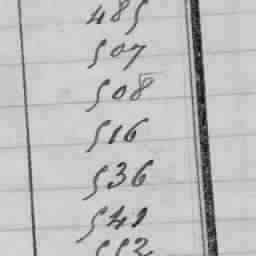 485
507
508
516
536
541
552